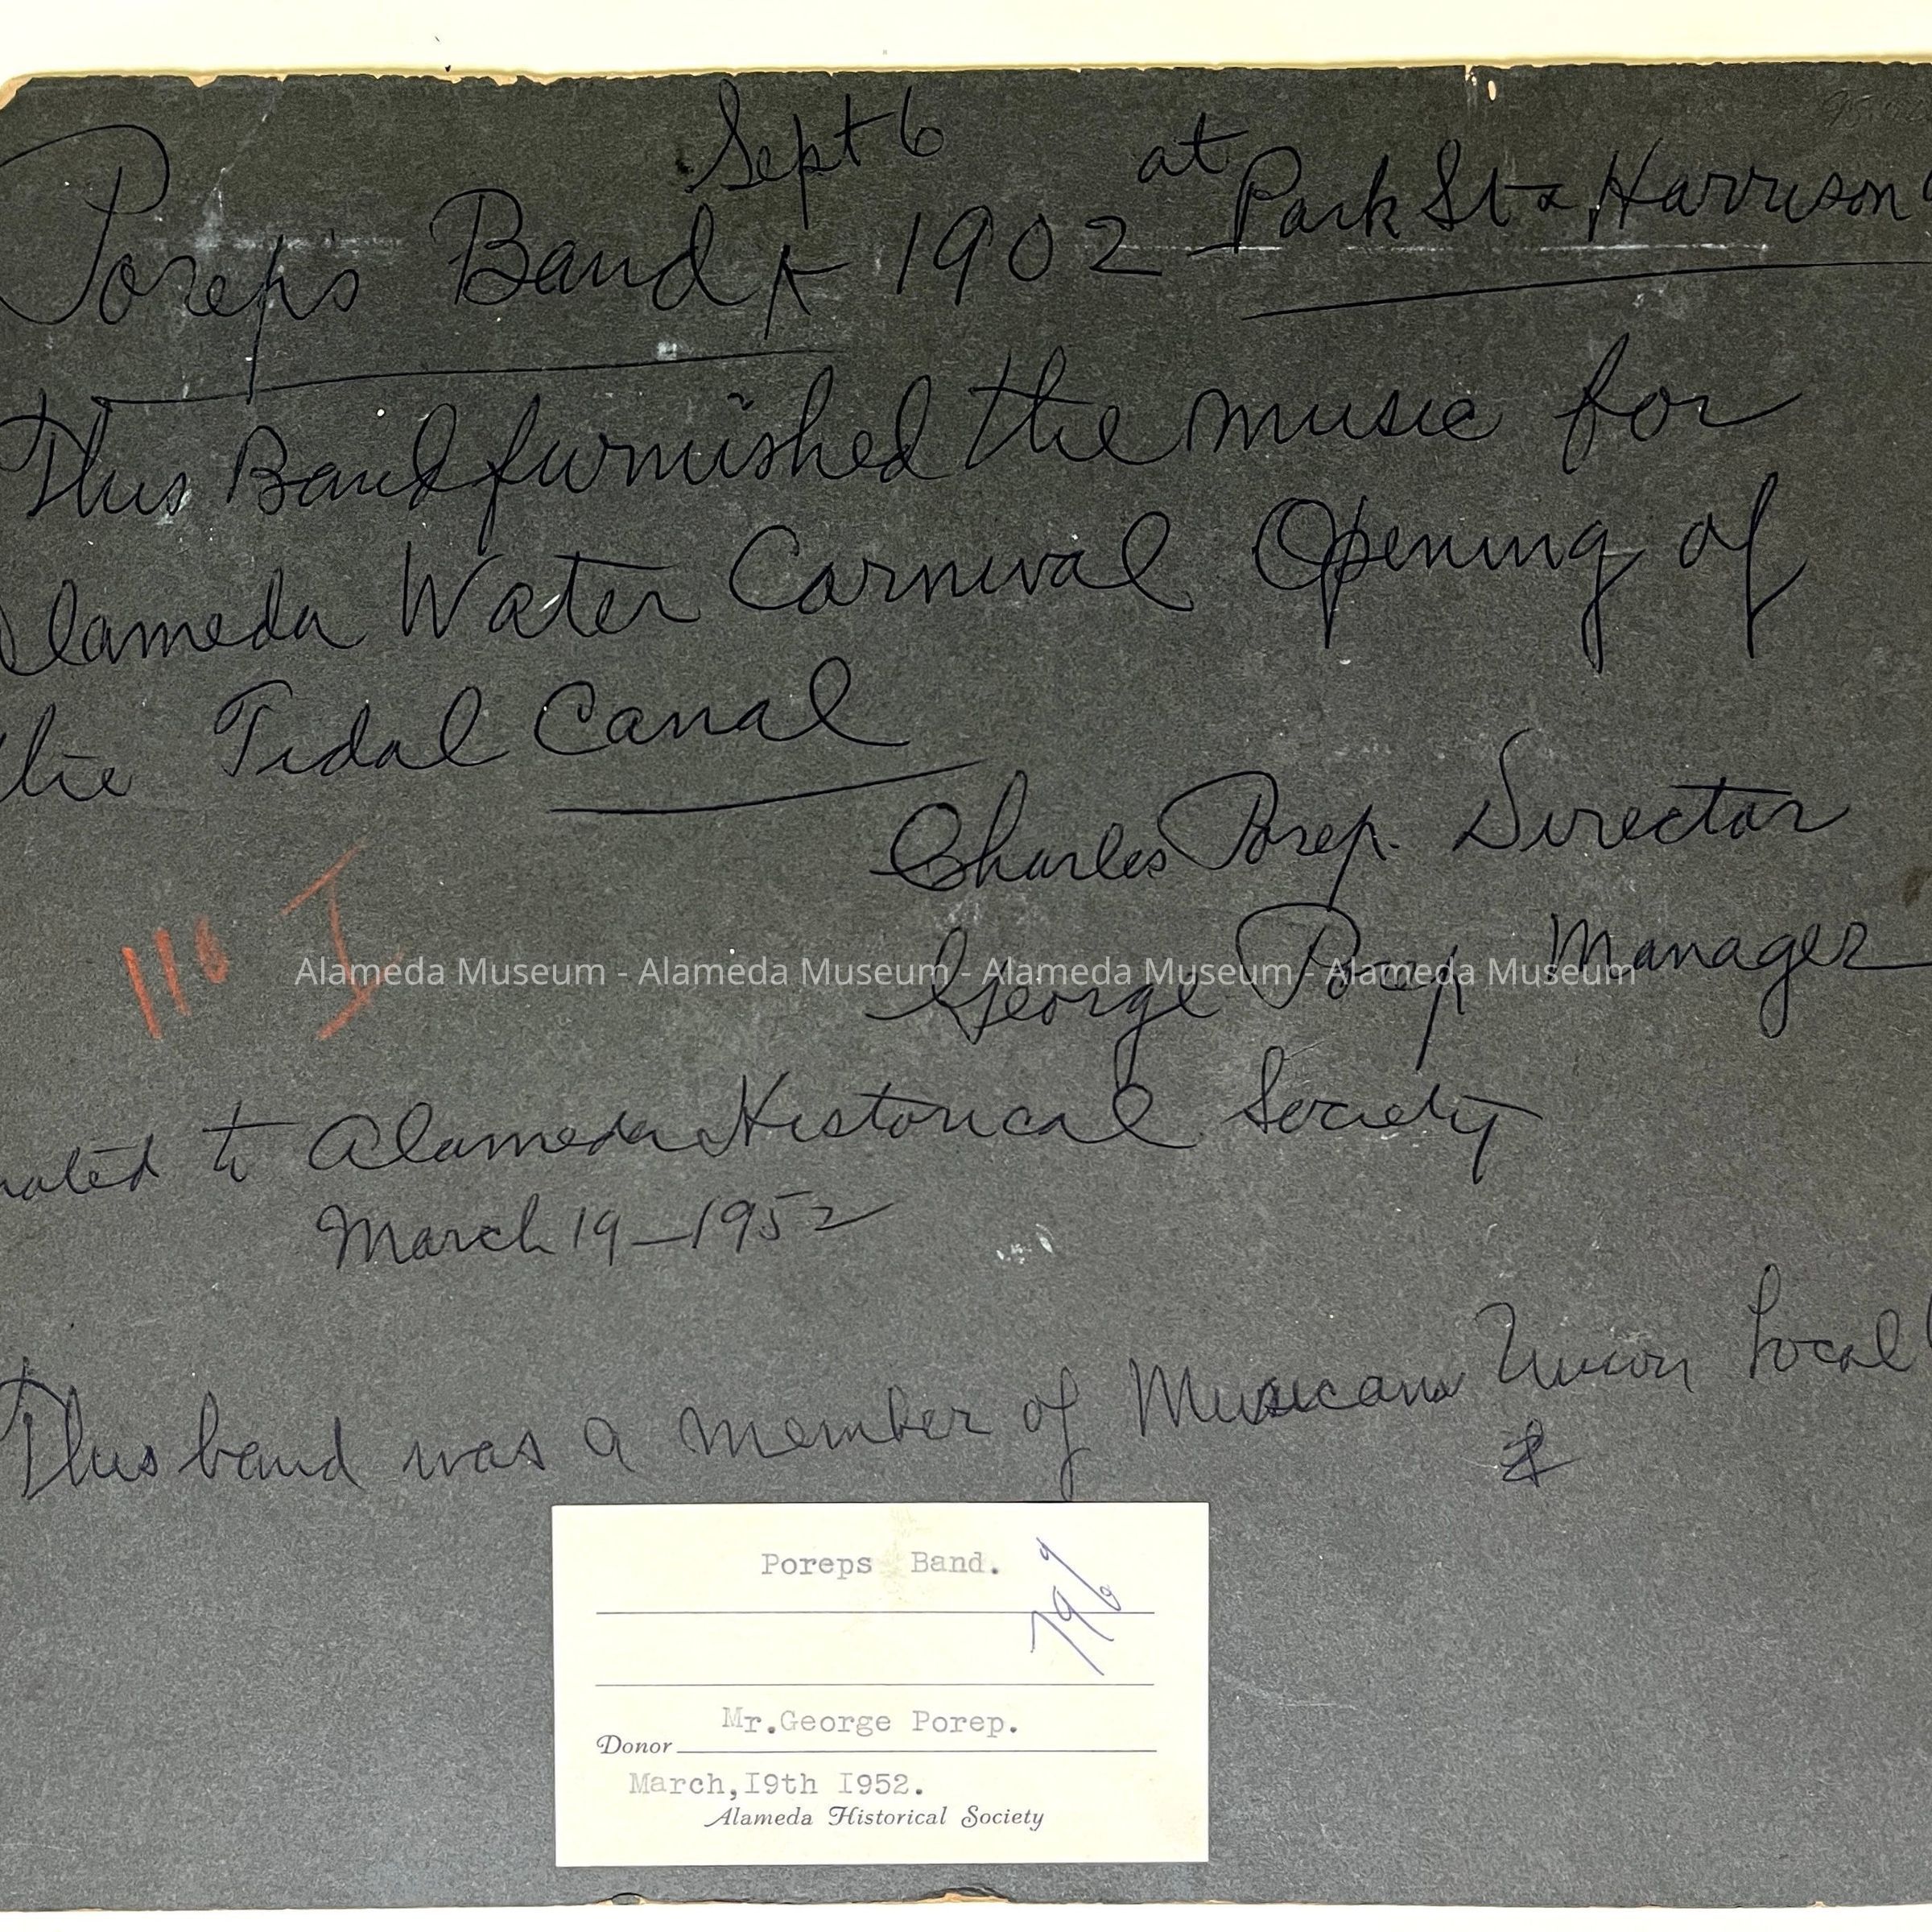 Sept 6
Porep's Band 1902 at Park St & Harrison
This Band furnished the music for
Alameda Water Carnival Opening of
the Tidal Canal
Charles Porep. Director
George Porep Manager
110 I
Alameda Museum - Alameda Museum - Alameda Museum - Alameda Museum
nated to Alameda Historical Society
March 19-1952
This band was a member of Musicans Union Local
Poreps Band.
Mr.George Porep.
Donor
March,I9th I952.
Alameda Historical Society